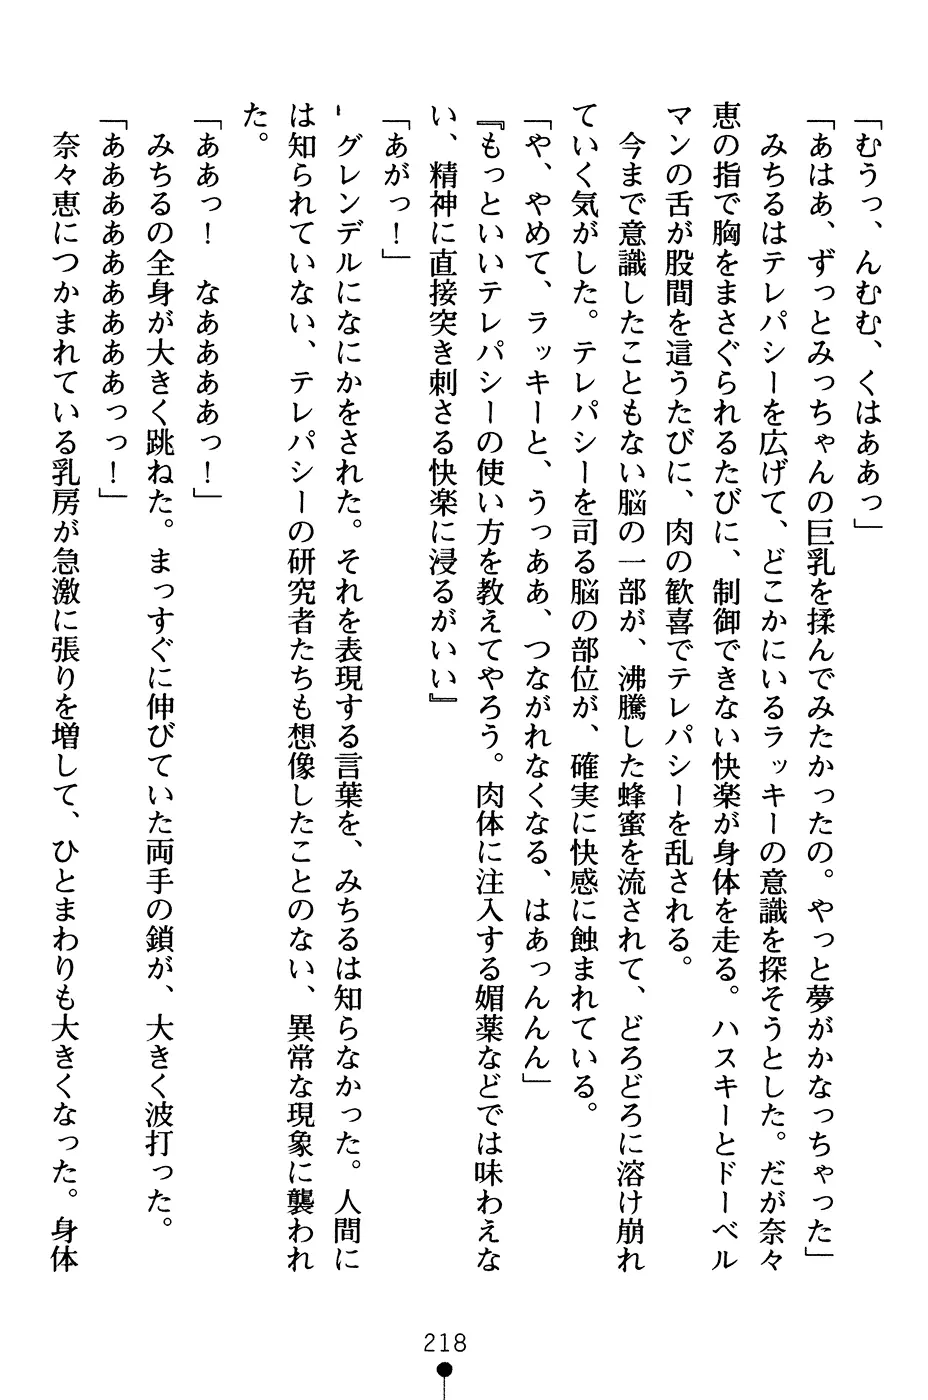 「むうっ、んむむ、くはああっ」
「あはあ、ずっとみっちゃんの巨乳を揉んでみたかったの。やっと夢がかなっちゃった」
みちるはテレパシーを広げて、どこかにいるラッキーの意識を探そうとした。だが奈々
恵の指で胸をまさぐられるたびに、制御できない快楽が身体を走る。ハスキーとドーベル
マンの舌が股間を這うたびに、肉の歓喜でテレパシーを乱される。
今まで意識したこともない脳の一部が、沸騰した蜂蜜を流されて、どろどろに溶け崩れ
ていく気がした。テレパシーを司る脳の部位が、確実に快感に蝕まれている。
「や、やめて、ラッキーと、うっああ、つながれなくなる、はあっんんん」
『もっといいテレパシーの使い方を教えてやろう。肉体に注入する媚薬などでは味わえな
い、精神に直接突き刺さる快楽に浸るがいい』
「あがっ！」
グレンデルになにかをされた。それを表現する言葉を、みちるは知らなかった。人間に
は知られていない、テレパシーの研究者たちも想像したことのない、異常な現象に襲われ
た。
「ああっ！　なああああっ！」
みちるの全身が大きく跳ねた。まっすぐに伸びていた両手の鎖が、大きく波打った。
「ああああああああっっ！」
奈々恵につかまれている乳房が急激に張りを増して、ひとまわりも大きくなった。身体
218